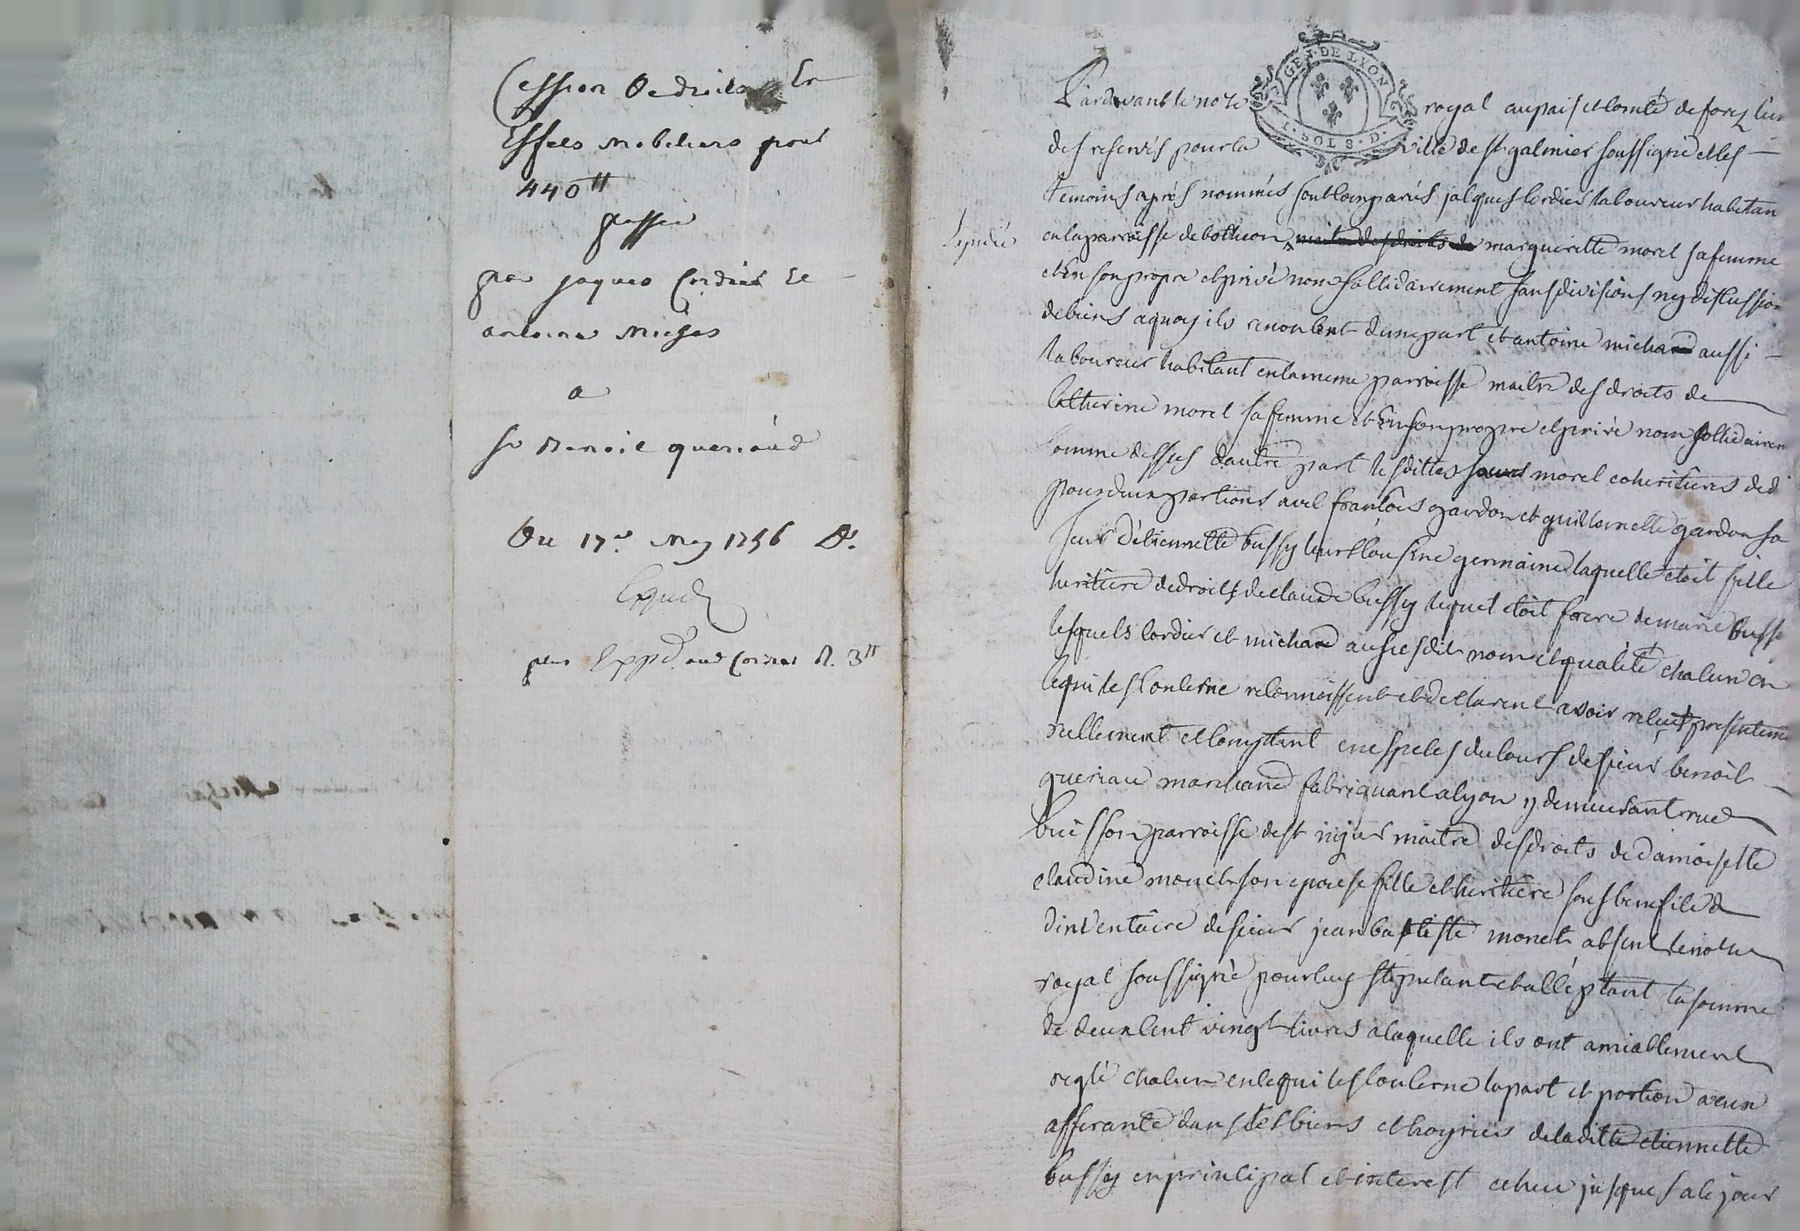 Cession de droits Et
Effets mobiliers pour
440ᵗᵗ
passée
par Jaques Cordier Et
antoine
a
Sr Benoit queriaud
Du 17e. May 1756
Expéd
plus Exppd. aud Cordier R. 3ᵗᵗ
GEN. DE LYON
I. SOLS. D.
Pardevant le nore royal au païs et comté de forez l'un
des reservés pour la ville de st galmier soussigné et les
temoins aprés nommés sont comparus jacques cordier laboureur habitan
en la parroisse de bothéon margueritte morel sa femme
et En son propre et privé nom sollidairement sans divisions ny discussion
de biens a quoy ils renoncent d'une part et antoine michard aussi
laboureur habitant en la meme parroisse maitre des droits de
catherine morel sa femme et En son propre et privé nom sollidairem
comme dessus d'autre part lesdittes morel coheritieres de
pour deux portions avec françois gardon et guillemette gardon sa
seur d'étiennette bussy leur cousine germaine laquelle étoit fille
heritiere de droit de claude bussy lequel étoit frere de marie bussy
lesquels cordier et michard aux susdits noms et qualité chacun en
ce qui les concerne reconnoissent et declarent avoir reçu presenteme
réellement et comptant en especes du cours de sieur benoit
queriau marchand fabriquant a lyon y demeurant rue
buisson parroisse de st nizier maitre des droits de damoiselle
claudine monet son epouse fille et heritiere sous benefice
d'inventaire de sieur jean baptiste monet absent le notre
royal soussigné pour luy stipulant et acceptant la somme
de deux cent vingt livres a laquelle ils ont amiablement
reglé chacun en ce qui les concerne la part et portion a eux
afferante dans les biens et hoyries de la ditte etiennette
bussy en principal et interest echeu jusques a ce jour